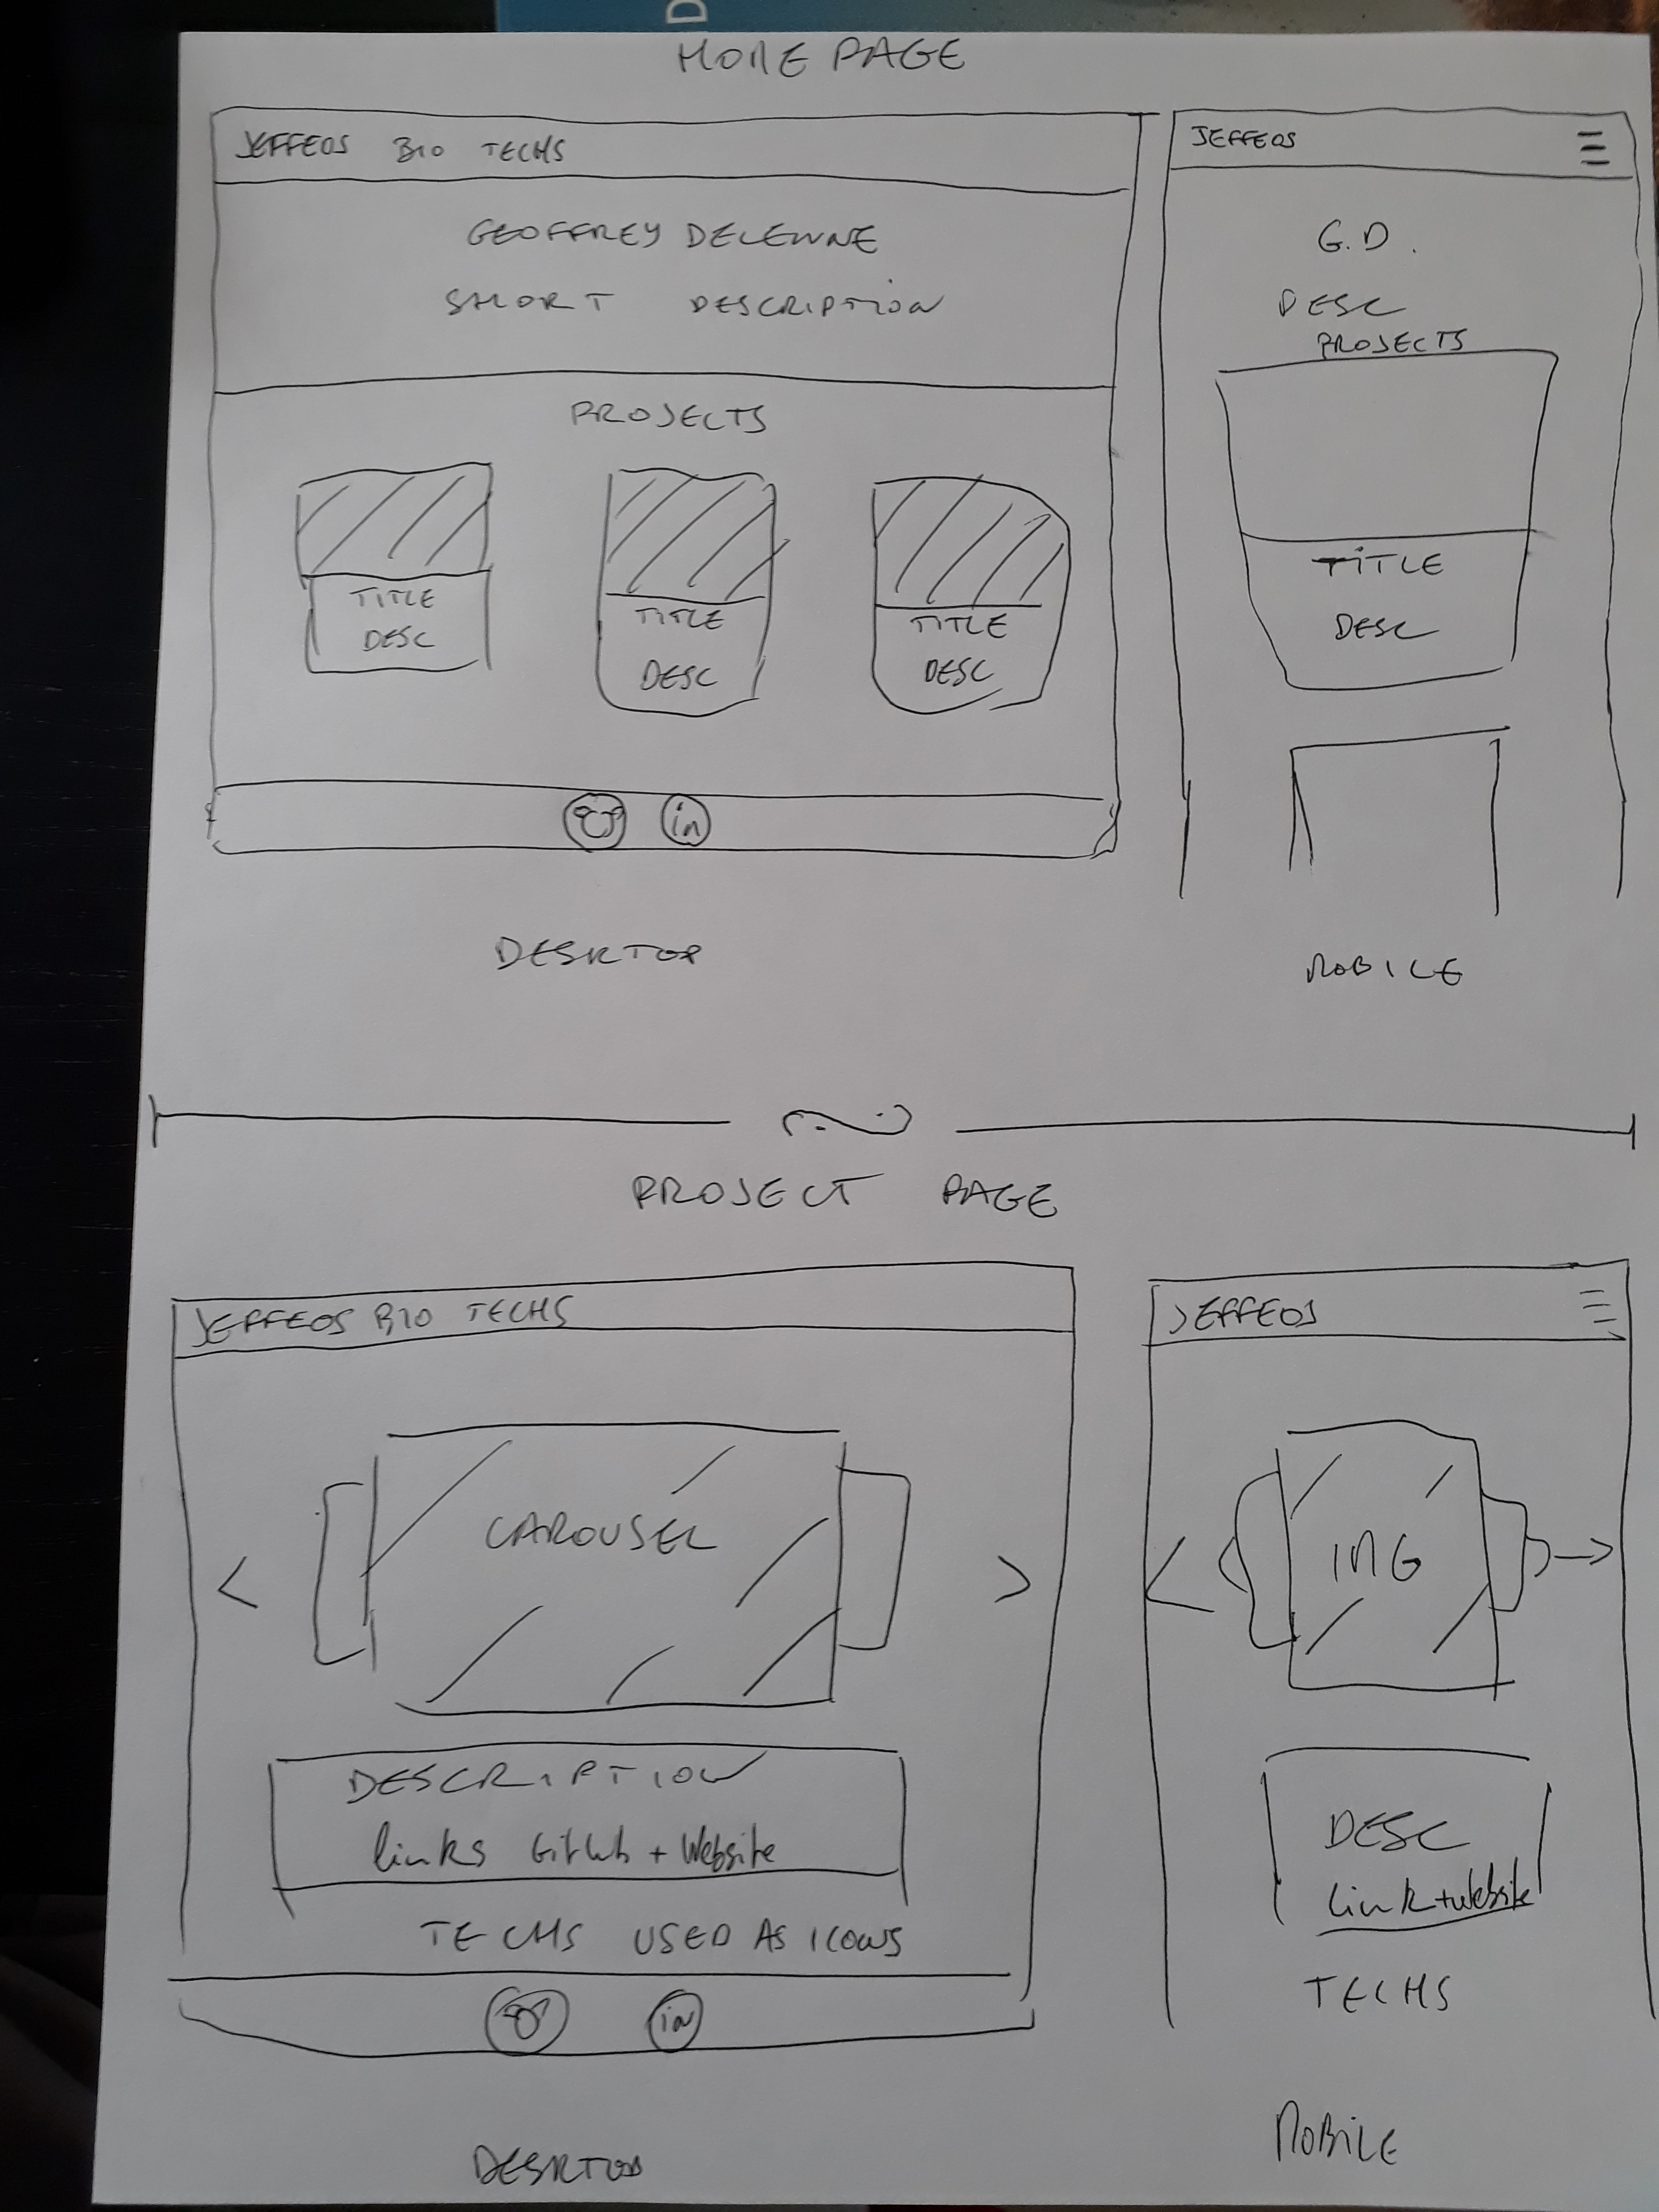 D
HOME PAGE
JEFFEOS BIO TECHS
GEOFFREY DELEWNE
SHORT DESCRIPTION
PROJECTS
TITLE
DESC
TITLE
DESC
TITLE
DESC
in
DESKTOP
JEFFEOS
G.D.
DESC
PROJECTS
TITLE
DESC
MOBILE
PROJECT PAGE
JEFFEOS BIO TECHS
< CAROUSEL >
DESCRIPTION
links GitHub + Website
TECHS USED AS ICONS
in
DESKTOP
JEFFEOS
IMG
DESC
link + website
TECHS
MOBILE